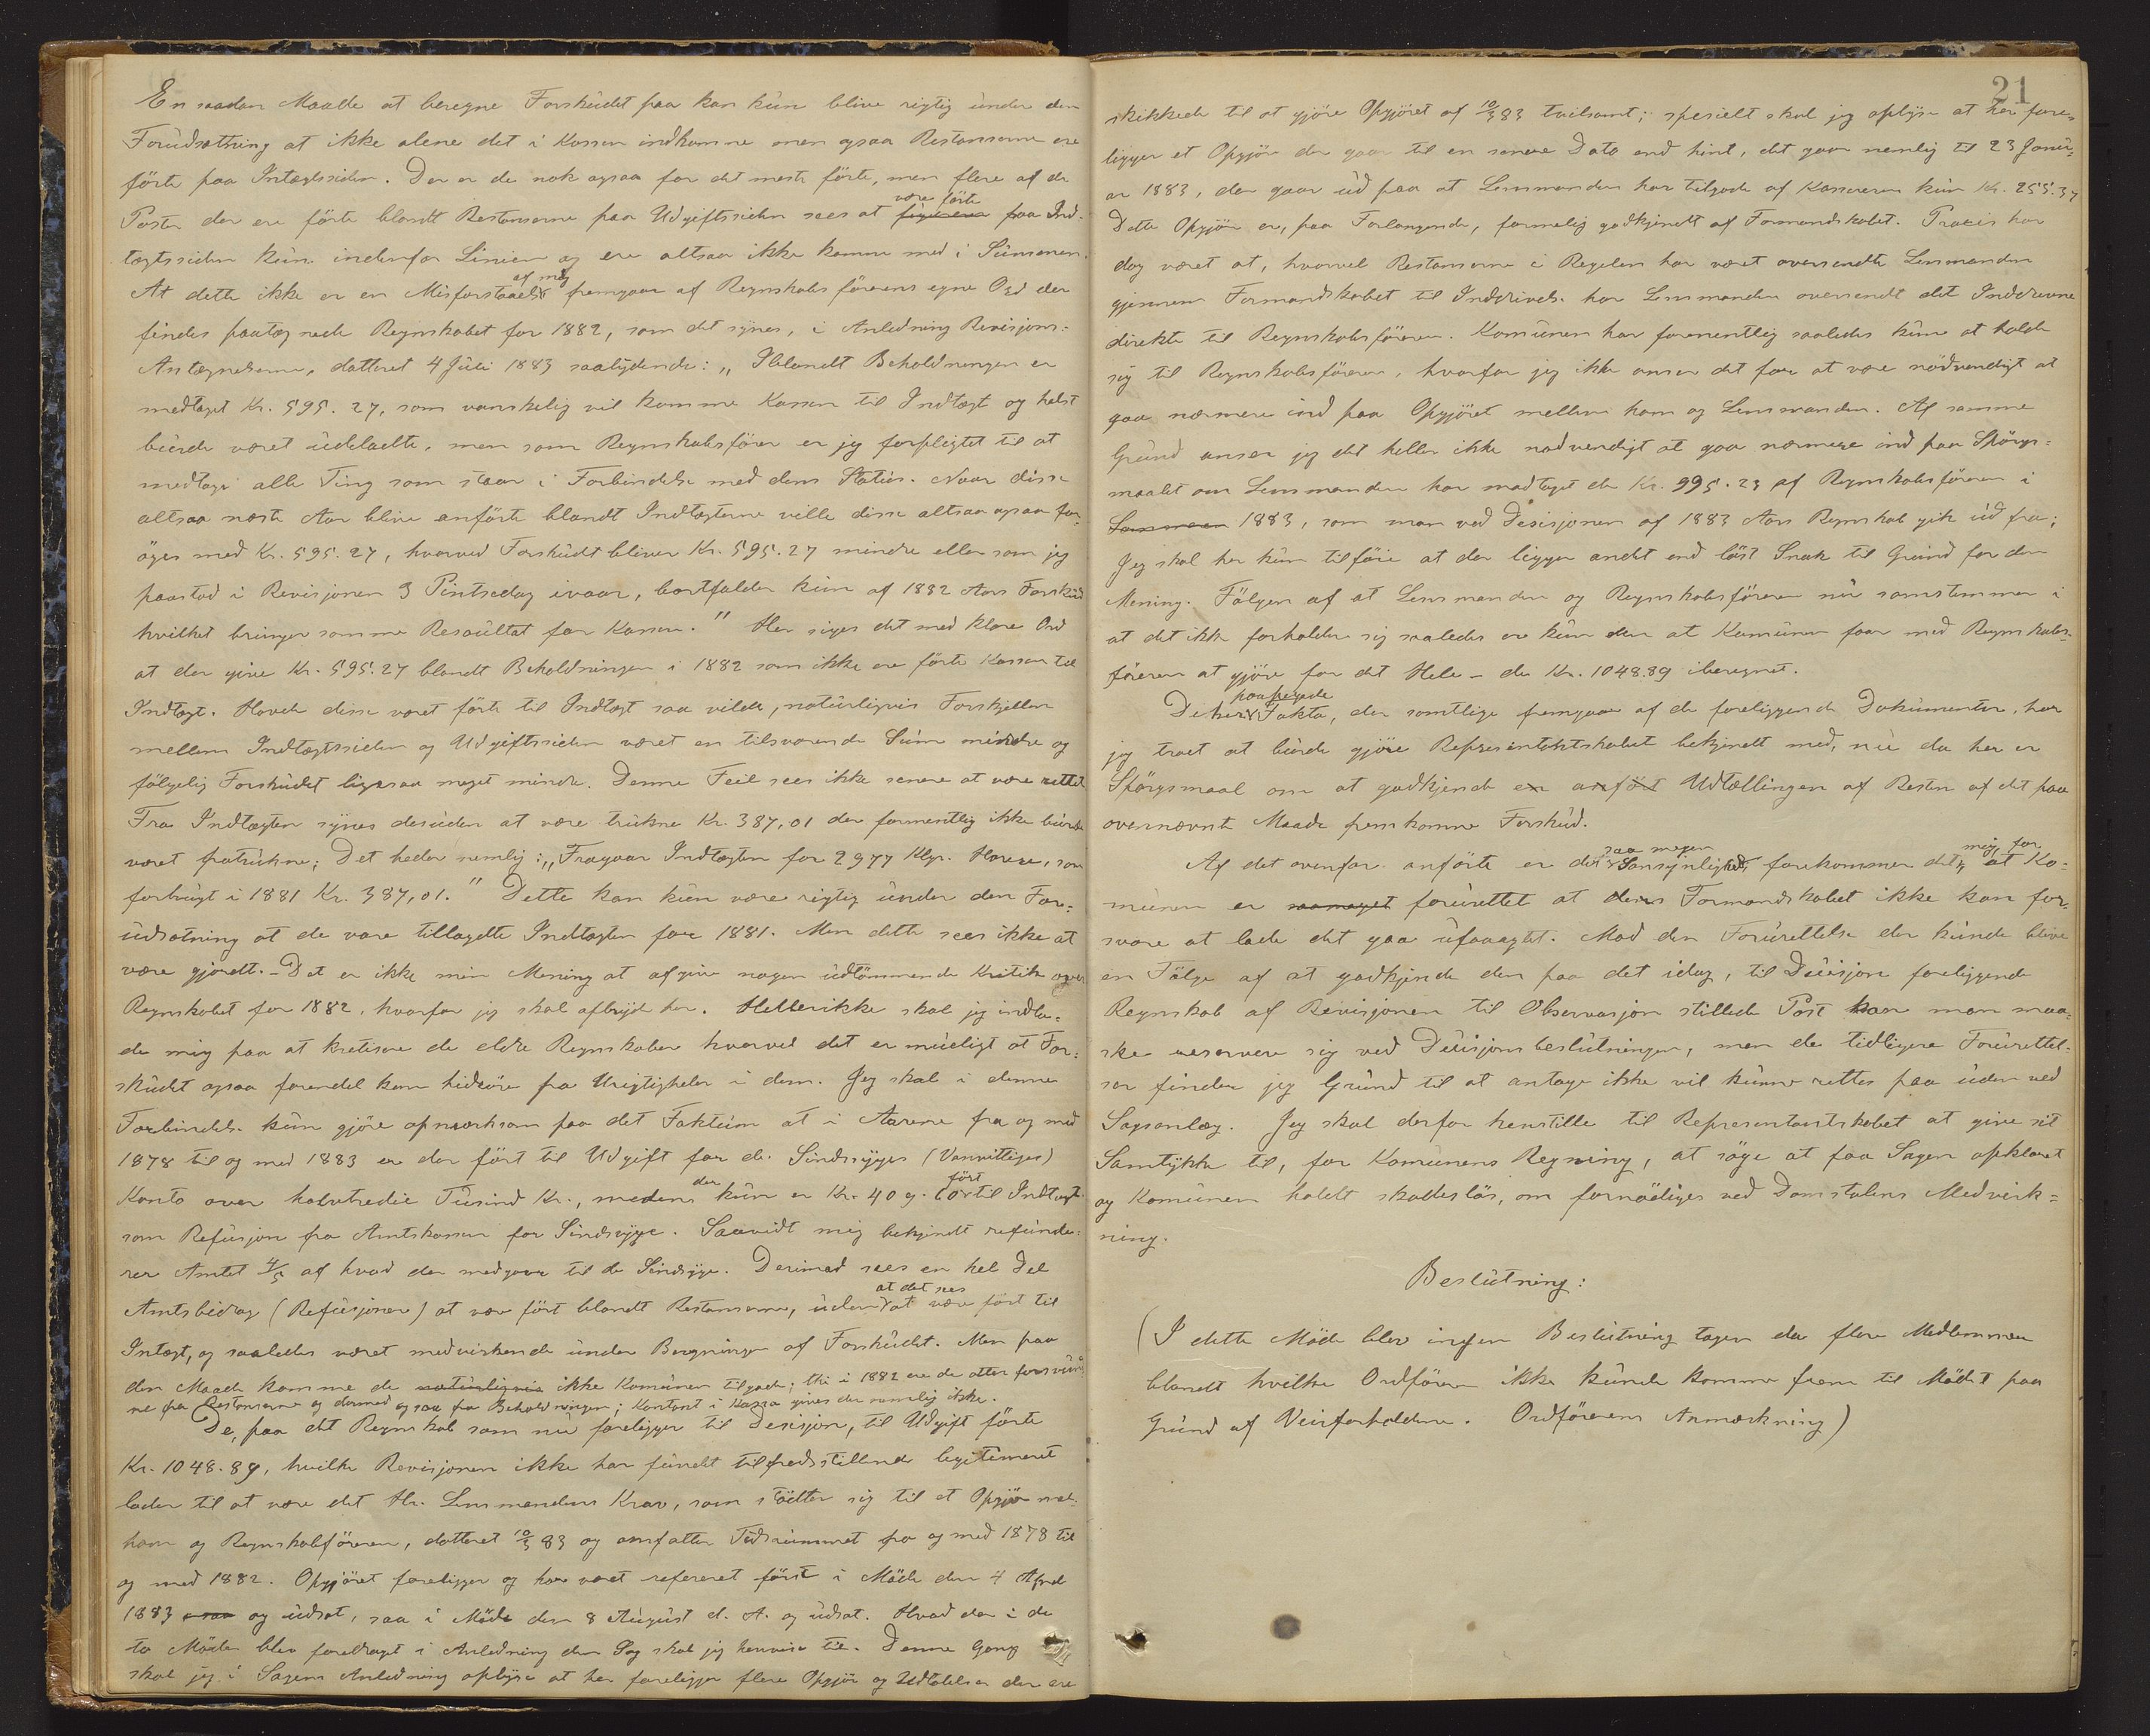 En saadan Maade at beregne Forskudet paa kan kun blive rigtig under den
Forudsætning at ikke alene det i Kassen indkomne men ogsaa Restanserne ere
förte paa Intægtssiden. Der er de nok ogsaa for det meste förte, men flere af de
Poster der ere förte blandt Restanserne paa Udgiftssiden sees at være förte paa Ind-
tægtssiden kun indenfor Linien og ere altsaa ikke komne med i Summen.
At dette ikke er en Misforstaaelse af mig fremgaar af Regnskabsförerens egne Ord der
findes paategnede Regnskabet for 1882, som det synes, i Anledning Revisjons-
Antegnelserne, datteret 4 Juli 1883 saalydende: „Iblandt Beholdningen er
medtaget Kr. 595.27, som vanskelig vil komme Kassen til Indtægt og helst
burde været udeladte, men som Regnskabsförer er jeg forpligtet til at
medtage alle Ting som staar i Forbindelse med dens Status. Naar disse
altsaa næste Aar blive anförte blandt Indtægterne ville disse altsaa ogsaa for-
öges med Kr. 595.27, hvorved Forskudt bliver Kr. 595.27 mindre eller som jeg
paastod i Revisjonen 3 Pintsedag ivaar, bortfalder kun af 1882 Aars Forskud
hvilket bringer samme Resultat for Kassen." Her siges det med klare Ord
at der gives Kr. 595.27 blandt Beholdningen i 1882 som ikke ere förte Kassen til
Indtægt. Havde disse været förte til Indtægt saa vilde, naturligvis Forskjellen
mellem Indtægtssiden og Udgiftssiden været en tilsvarende Sum mindre og
fölgelig Forskudet ligesaa meget mindre. Denne Feil sees ikke senere at være rettet
Fra Indtægten synes desuden at være trukne Kr. 387,01 der formentlig ikke burde
været fratrukne; Det heder nemlig: „Fragaar Indtægten for 2977 Klgr. Havre, som
forbrugt i 1881 Kr. 387,01." Dette kan kun være rigtig under den For-
udsætning at de vare tillagdte Indtægten for 1881. Men dette sees ikke at
være gjordt. - Det er ikke min Mening at afgive nogen udtömmende Kritik over
Regnskabet for 1882, hvorfor jeg skal afbryde her. Hellerikke skal jeg indla-
de mig paa at kretisere de eldre Regnskaber hvorvel det er mueligt at For-
skudet ogsaa forendel kan hidröre fra Urigtigheder i dem. Jeg skal i denne
Forbindelse kun gjöre opmærksom paa det Faktum at i Aarene fra og med
1878 til og med 1883 er der fört til Udgift for de Sindssyges (Vanvittiges)
Konto over halvtredie Tusind Kr., medens der kun er Kr. 409.60 fört til Indtægt
som Refusjon fra Amtskassen for Sindssyge. Saavidt mig bekjendt refunde-
rer Amtet 4/5 af hvad der medgaar til de Sindsyge. Derimod sees en hel Del
Amtsbidrag (Refusjoner) at være fört blandt Restanserne, uden at det sees at være fört til
Intægt, og saaledes været medvirkende under Beregningen af Forskudet. Men paa
den Maade komme de ikke Komunen tilgode; thi i 1882 ere de atter forsvun-
ne fra Restanserne og dermed ogsaa fra Beholdningen; Kontant i Kassa gives der nemlig ikke.
De, paa det Regnskab som nu foreligger til Desisjon, til Udgift förte
Kr. 1048.89, hvilke Revisjonen ikke har fundet tilfredsstillende legitimeret
lader til at være det Hr. Lensmandens Krav, som stötter sig til et Opgjör mel.
ham og Regnskabsföreren, datteret 10/3 83 og omfatter Tidsrummet fra og med 1878 til
og med 1882. Opgjöret foreligger og har været refereret först i Möde den 4 April
1883 og udsat, saa i Möde den 8 August d. A. og udsat. Hvad der i de
to Möder blev foredraget i Anledning den Sag skal jeg henvise til. Denne Gang
skal jeg i Sagens Anledning oplyse at her foreligger flere Opgjör og Udtalelser der ere
21
skikkede til at gjöre Opgjöret af 10/3 83 tvilsomt; spesielt skal jeg oplyse at her fore-
ligger et Opgjör der gaar til en senere Dato end hint, det gaar nemlig til 23 Janu-
ar 1883, der gaar ud paa at Lensmanden har tilgode af Kassereren kun Kr. 255.37
Dette Opgjör er, paa Forlangende, formelig godkjendt af Formandskabet. Praxis har
dog været at, hvorvel Restanserne i Regelen har været oversendte Lensmanden
gjennem Formandskabet til Inddrivelse har Lensmanden oversendt det Inddrevne
direkte til Regnskabsföreren. Komunen har formentlig saaledes kun at holde
sig til Regnskabsföreren, hvorfor jeg ikke anser det for at være nödvendigt at
gaa nærmere ind paa Opgjöret mellem ham og Lensmanden. Af samme
Grund anser jeg det heller ikke nødvendigt at gaa nærmere ind paa Spörgs-
maalet om Lensmanden har modtaget de Kr. 995.23 af Regnskabsföreren i
1883, som man ved Desisjonen af 1883 Aars Regnskab gik ud fra;
Jeg skal her kun tilföie at der ligger andet end löst Snak til Grund for den
Mening. Fölgen af at Lensmanden og Regnskabsföreren nu samstemmer i
at det ikke forholder sig saaledes er kun den at Komunen faar med Regnskabs-
föreren at gjöre for det Hele - de Kr. 1048.89 iberegnet.
De her paapegede Fakta, der samtlige fremgaar af de foreliggende Dokumenter, har
jeg troet at burde gjöre Representantskabet bekjendt med, nu da her er
Spörgsmaal om at godkjende Udtællingen af Resten af det paa
ovennævnte Maade fremkomne Forskud.
Af det ovenfor anförte er der saa megen Sansynlighed, forekommer det mig, for at Ko-
munen er forurettet at dens Formandskabet ikke kan for-
svare at lade det gaa upaaagtet. Mod den Forurettelse der kunde blive
en Fölge af at godkjende den paa det idag, til Desisjon foreliggende
Regnskab af Revisjonen til Observasjon stillede Post kan man maa-
ske reservere sig ved Desisjonsbeslutningen, men de tidligere Forurettel-
ser finder jeg Grund til at antage ikke vil kunne rettes paa uden ved
Sagsanlæg. Jeg skal derfor henstille til Representantskabet at give sit
Samtykke til, for Komunens Regning, at söge at faa Sagen opklaret
og Komunen holdt skadeslös, om fornödiges ved Domstolens Medvirk-
ning.
Beslutning:
(I dette Möde blev ingen Beslutning tagen da flere Medlemmer
blandt hvilke Ordföreren ikke kunde komme frem til Mödet paa
Grund af Veirforholdene. Ordförerens Anmærkning)